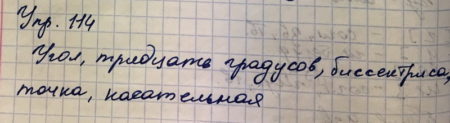 Упр. 114
Угол, тридцать градусов, биссектриса,
точка, касательная